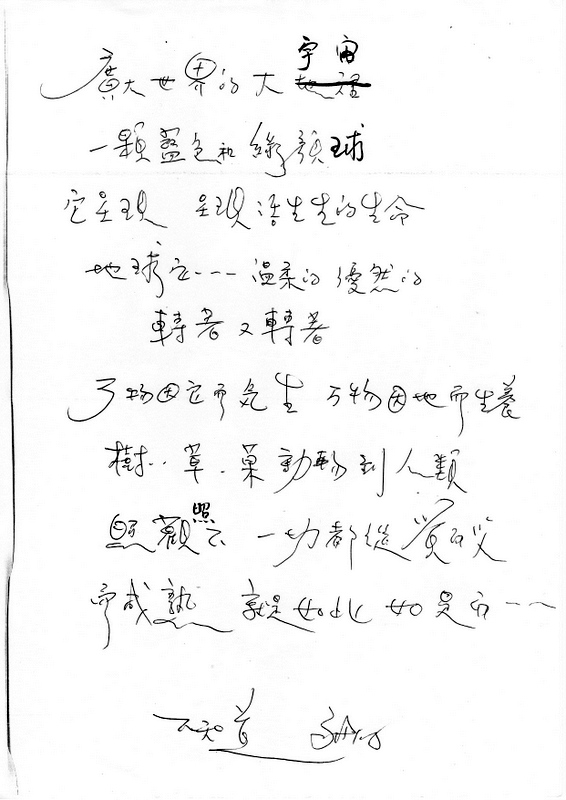 廣大世界的大宇宙
一顆藍色和綠顏球
它呈現 呈現活生生的生命
地球它--- 溫柔的 優然的
轉著又轉著
万物因它而気生 万物因地而生養
樹.. 草. 菓 動物到人類
照觀照 一切都從
而成熟 就是如此 如是
不知道